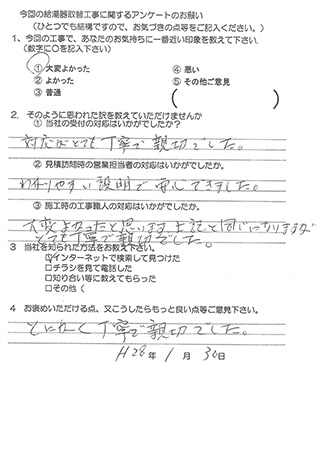 今回の給湯器取替工事に関するアンケートのお願い
(ひとつでも結構ですので、お気づきの点等をご記入ください。)
1、今回の工事で、あなたのお気持ちに一番近い印象を教えて下さい。
(数字に○を記入下さい)
① 大変よかった ④ 悪い
② よかった ⑤ その他ご意見
③ 普通 ( )
2. そのように思われた訳を教えていただけませんか
① 当社の受付の対応はいかがでしたか?
対応はとても丁寧で親切でした。
② 見積訪問時の営業担当者の対応はいかがでしたか。
わかりやすい説明で安心できました。
③ 施工時の工事職人の対応はいかがでしたか。
大変よかったと思います 上記と同じになりますが
とても丁寧で親切でした。
3 当社を知られた方法をお教え下さい。
☑インターネットで検索して見つけた
□チラシを見て電話した
□知り合い等に教えてもらった
□その他(
4 お褒めいただける点、又こうしたらもっと良い点等ご意見下さい。
とにかく丁寧で親切でした。
H28年 1月 30日